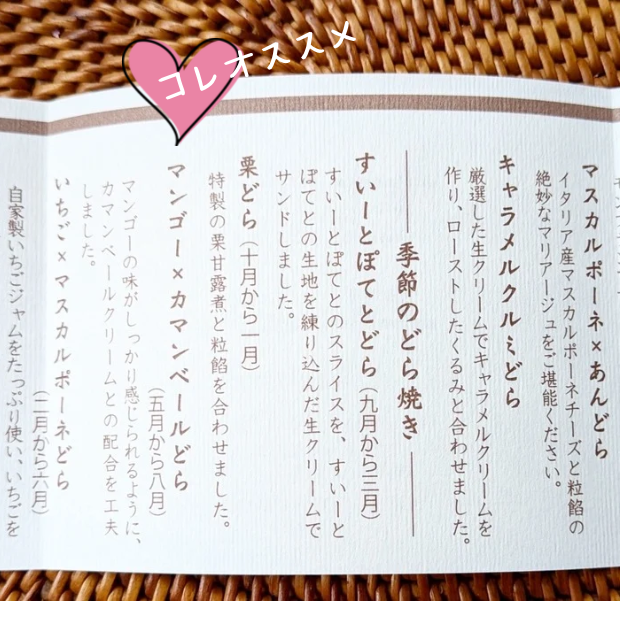 コレオススメ
マスカルポーネ×あんどら
イタリア産マスカルポーネチーズと粒餡の
絶妙なマリアージュをご堪能ください。
キャラメルクルミどら
厳選した生クリームでキャラメルクリームを
作り、ローストしたくるみと合わせました。
季節のどら焼き
すいーとぽてとどら(九月から三月)
すいーとぽてとのスライスを、すいーと
ぽてとの生地を練り込んだ生クリームで
サンドしました。
栗どら(十月から一月)
特製の栗甘露煮と粒餡を合わせました。
マンゴー×カマンベールどら
(五月から八月)
マンゴーの味がしっかり感じられるように、
カマンベールクリームとの配合を工夫
しました。
いちご×マスカルポーネどら
(二月から六月)
自家製いちごジャムをたっぷり使い、いちごを